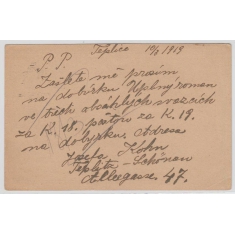 Teplice 19/1 1919
P. P.
Zašlete mě prosím
na dobírku Úplný román
ve třech obsáhlých svazcích
za K. 18. poštov za K. 19.
na dobírku. Adresa
Josefa Köhn
Teplitz-Schönau
Alleegasse 47.